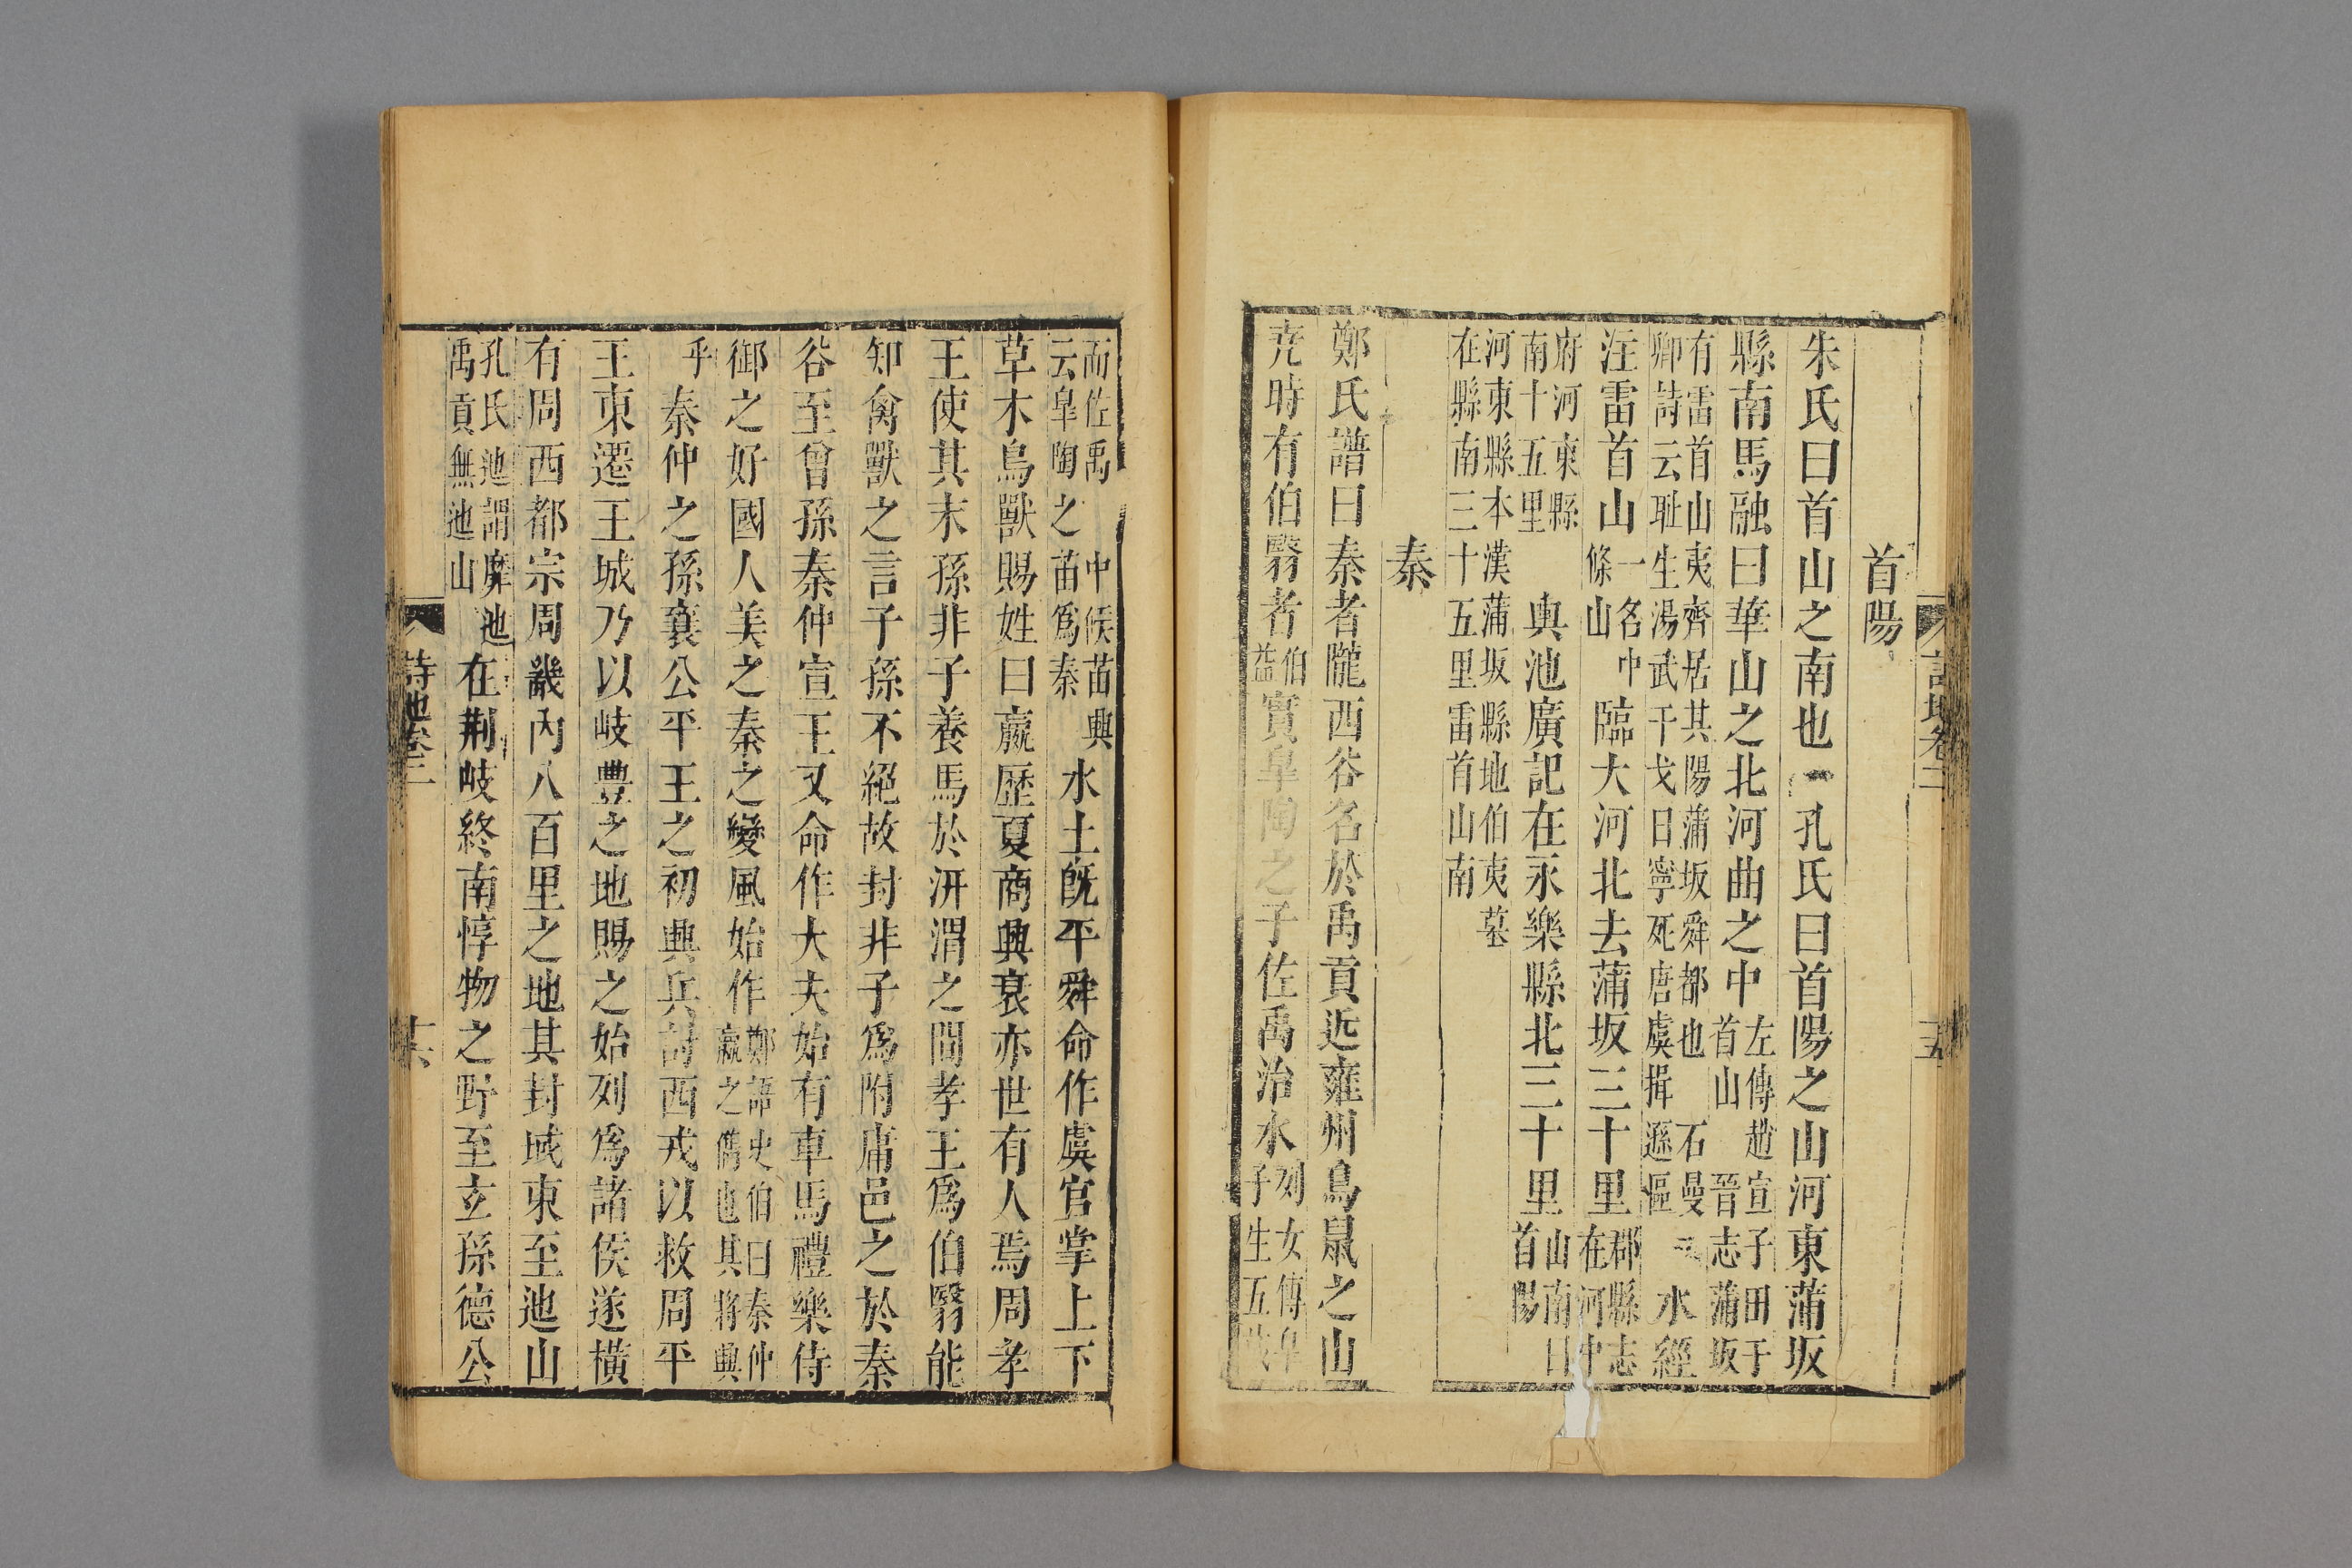 首陽
朱氏曰首山之南也孔氏曰首陽之山河東蒲坂
縣南馬融曰華山之北河曲之中左傳趙宣子田于首山晉志蒲坂
有雷首山夷齊居其陽蒲坂舜都也石曼卿詩云耻生湯武干戈日寧死唐虞揖遜區水經
注雷首山一名中條山臨大河北去蒲坂三十里郡縣志在河中
府河東縣南十五里輿池廣記在永樂縣北三十里山南曰首陽
河東縣本漢蒲坂縣地伯夷墓在縣南三十五里雷首山南
秦
鄭氏譜曰秦者隴西谷名於禹貢近雍州鳥鼠之山
尭時有伯翳者伯益實皐陶之子佐禹治水列女傳皐子生五歲
而佐禹中候苗興云皐陶之苗爲秦水土旣平舜命作虞官掌上下
草木鳥獸賜姓曰嬴歷夏商興衰亦世有人焉周孝
王使其末孫非子養馬於汧渭之間孝王爲伯翳能
知禽獸之言子孫不絕故封非子爲附庸邑之於秦
谷至曾孫秦仲宣王又命作大夫始有車馬禮樂侍
御之好國人美之秦之變風始作鄭語史伯曰秦仲嬴之儁也其將興
乎秦仲之孫襄公平王之初興兵討西戎以救周平
王東遷王城乃以岐豐之地賜之始列爲諸侯遂橫
有周西都宗周畿內八百里之地其封域東至迆山
孔氏迆謂靡迆禹貢無迆山在荆岐終南惇物之野至玄孫德公
詩地卷三
十六